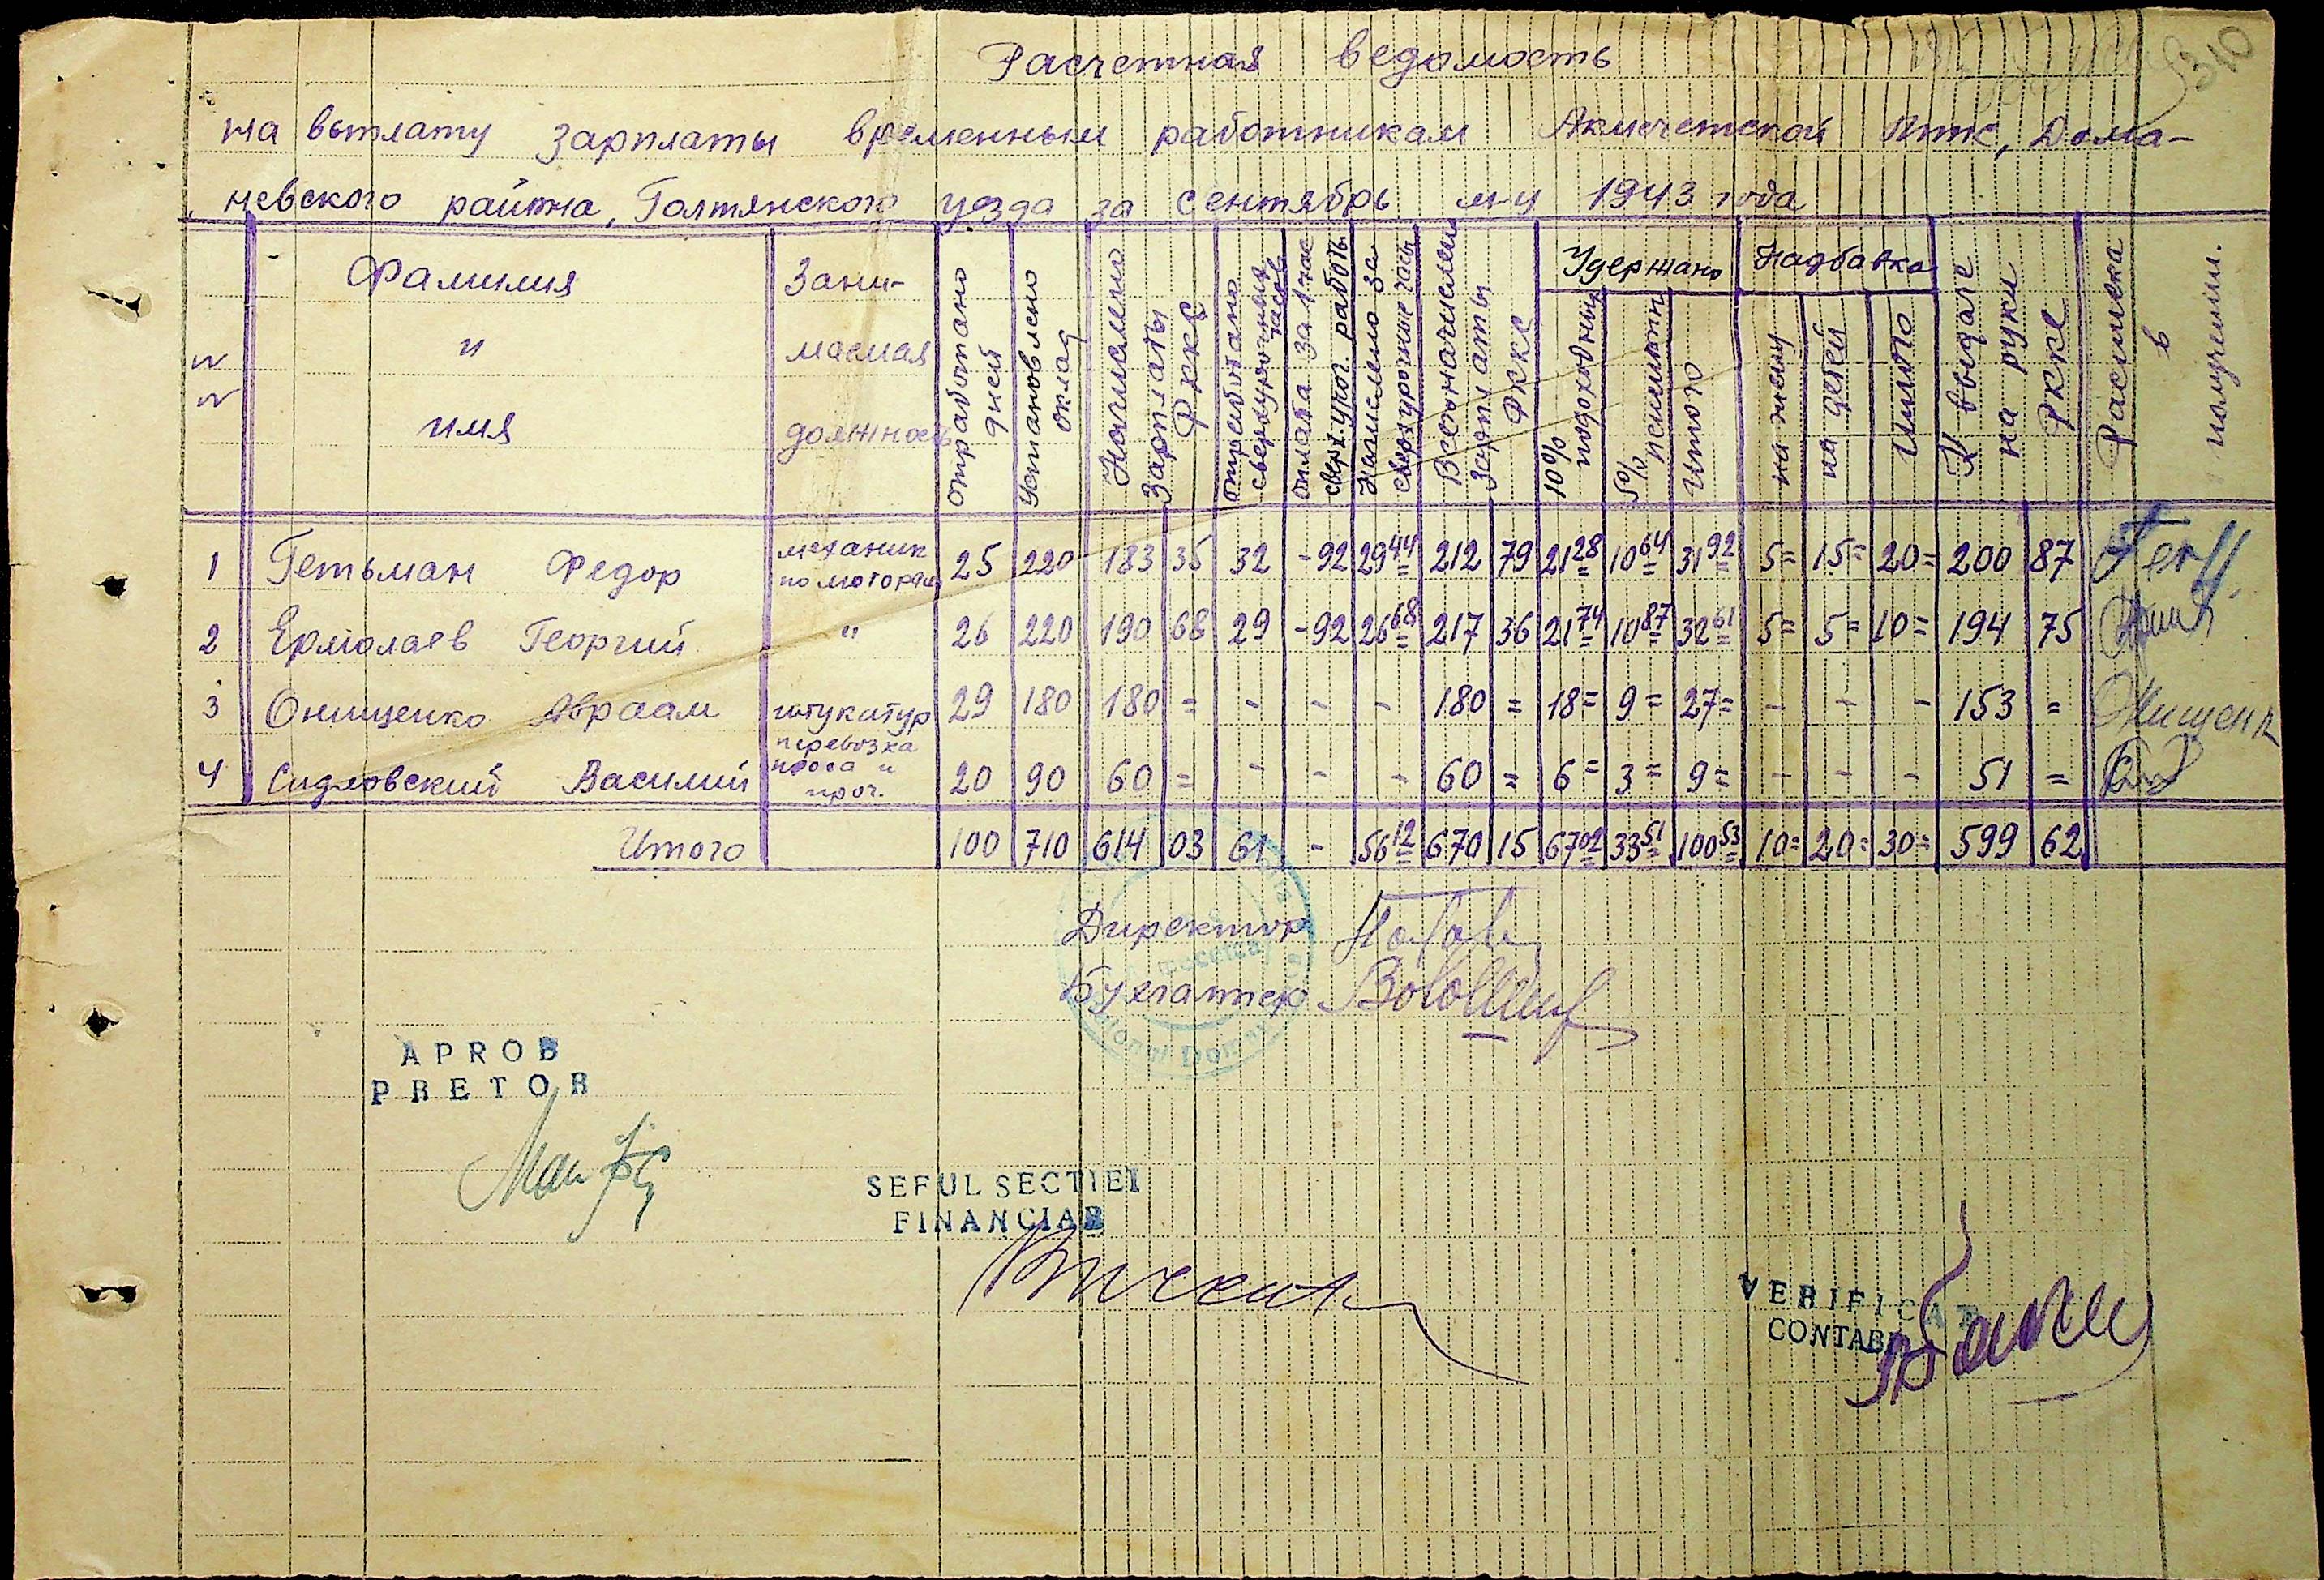 310
Расчетная ведомость
на выплату зарплаты временным работникам Акмечетской МТС, Дома-
невского района, Голтянского уезда за сентябрь м-ц 1943 года
№ № | Фамилия и имя | Занимаемая должность | Отработано дней | Установлено оклад | Начислено зарплаты РККС | Отработано сверхурочных часов | Оплата за 1 час сверхуроч. работы | Начислено за сверхурочные часы | Всего начислено зарплаты РККС | Удержано | Надбавка | К выдаче на руки РККС | Расписка в получении.
10% подоходный | 5% | Итого | на жену | на детей | Итого
1 | Гетьман Федор | механик по моторам | 25 | 220 | 183 | 35 | 32 | -92 | 29 44 | 212 | 79 | 21 28 | 10 64 | 31 92 | 5= | 15= | 20= | 200 | 87
2 | Ермолаев Георгий | " | 26 | 220 | 190 | 68 | 29 | -92 | 26 68 | 217 | 36 | 21 74 | 10 87 | 32 61 | 5= | 5= | 10= | 194 | 75
3 | Онищенко Авраам | штукатур | 29 | 180 | 180 | = | - | - | - | 180 | = | 18= | 9= | 27= | - | - | - | 153 | =
4 | Сидловский Василий | перевозка проса и проч. | 20 | 90 | 60 | = | - | - | - | 60 | = | 6= | 3= | 9= | - | - | - | 51 | =
Итого | 100 | 710 | 614 | 03 | 61 | - | 56 12 | 670 | 15 | 67 02 | 33 51 | 100 53 | 10= | 20= | 30= | 599 | 62
Директор
Бухгалтер
APROB
PRETOR
SEFUL SECTIEI
FINANCIAR
VERIFICAT
CONTABIL